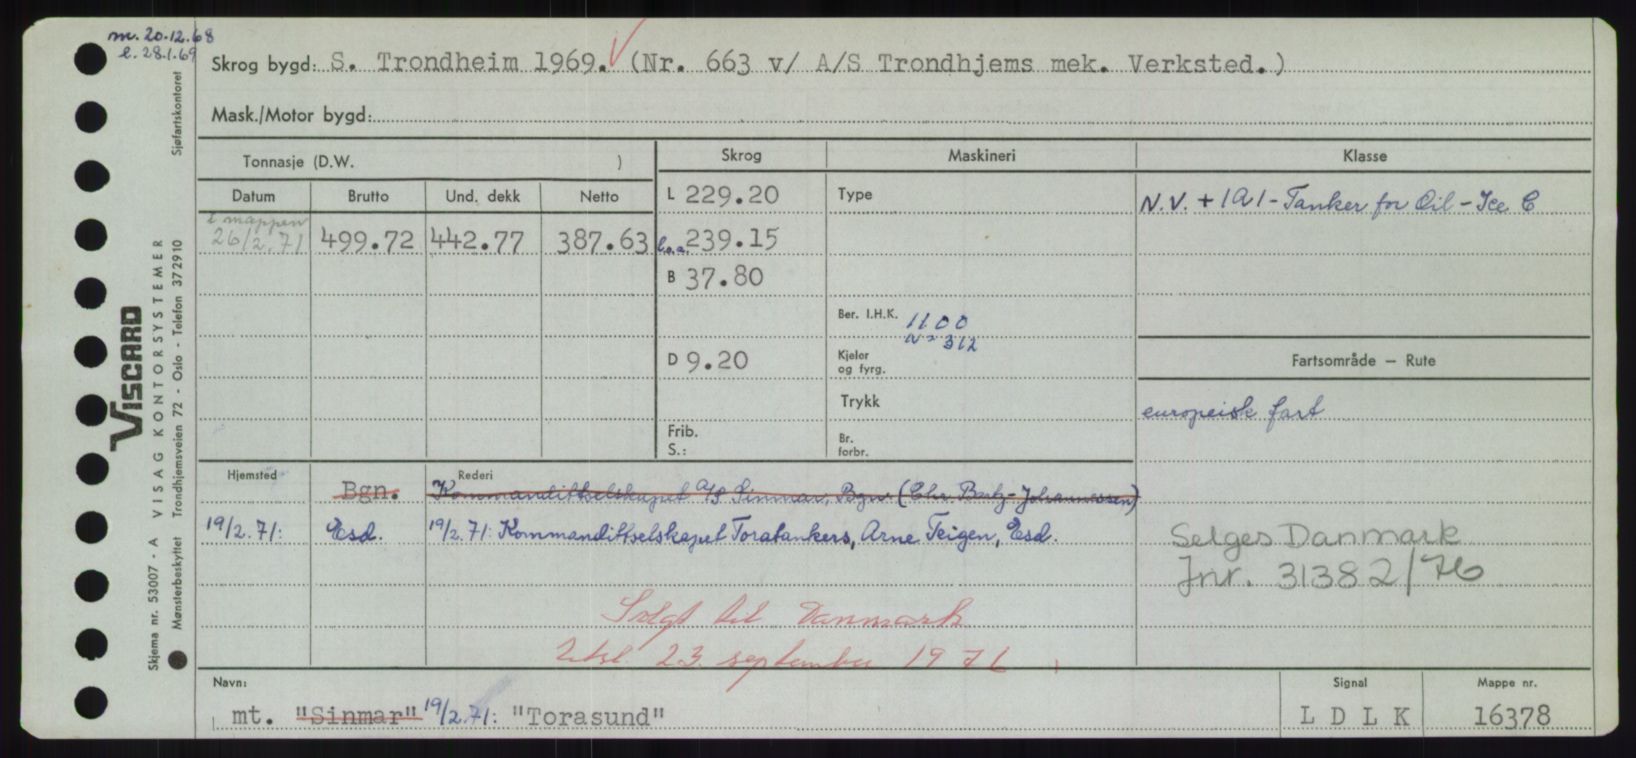 m. 20.12.68
l. 28.1.69
Skrog bygd: S. Trondheim 1969. (Nr. 663 v/ A/S Trondhjems mek. Verksted.)
Mask./Motor bygd:
Tonnasje (D.W. )
Skrog
Maskineri
Klasse
Datum
Brutto
Und. dekk
Netto
L 229.20
Type
N.V. + 1A1 - Tanker for Oil - Ice C
i mappen
26/2.71
499.72
442.77
387.63
l.o.a. 239.15
B 37.80
Ber. I.H.K. 1100
N= 312
D 9.20
Kjeler
og fyrg.
Fartsområde — Rute
Trykk
europeisk fart
Frib.
S.:
Br.
forbr.
Hjemsted
Rederi
Bgn.
Kommandittselskapet A/S Sinmar, Bgn. (Chr. Bartz-Johannessen)
19/2.71:
Esd.
19/2.71: Kommandittselskapet Toratankers, Arne Teigen, Esd.
Selges Danmark
Jnr. 31382/76
Solgt til Danmark
Utsl. 23. september 1976
Navn:
Signal
Mappe nr.
mt. "Sinmar" 19/2.71: "Torasund"
L D L K
16378
VISCARD
VISAG KONTORSYSTEMER
Skjema nr. 53007 - A
Mønsterbeskyttet Trondhjemsveien 72 - Oslo - Telefon 37 29 10
Sjøfartskontoret